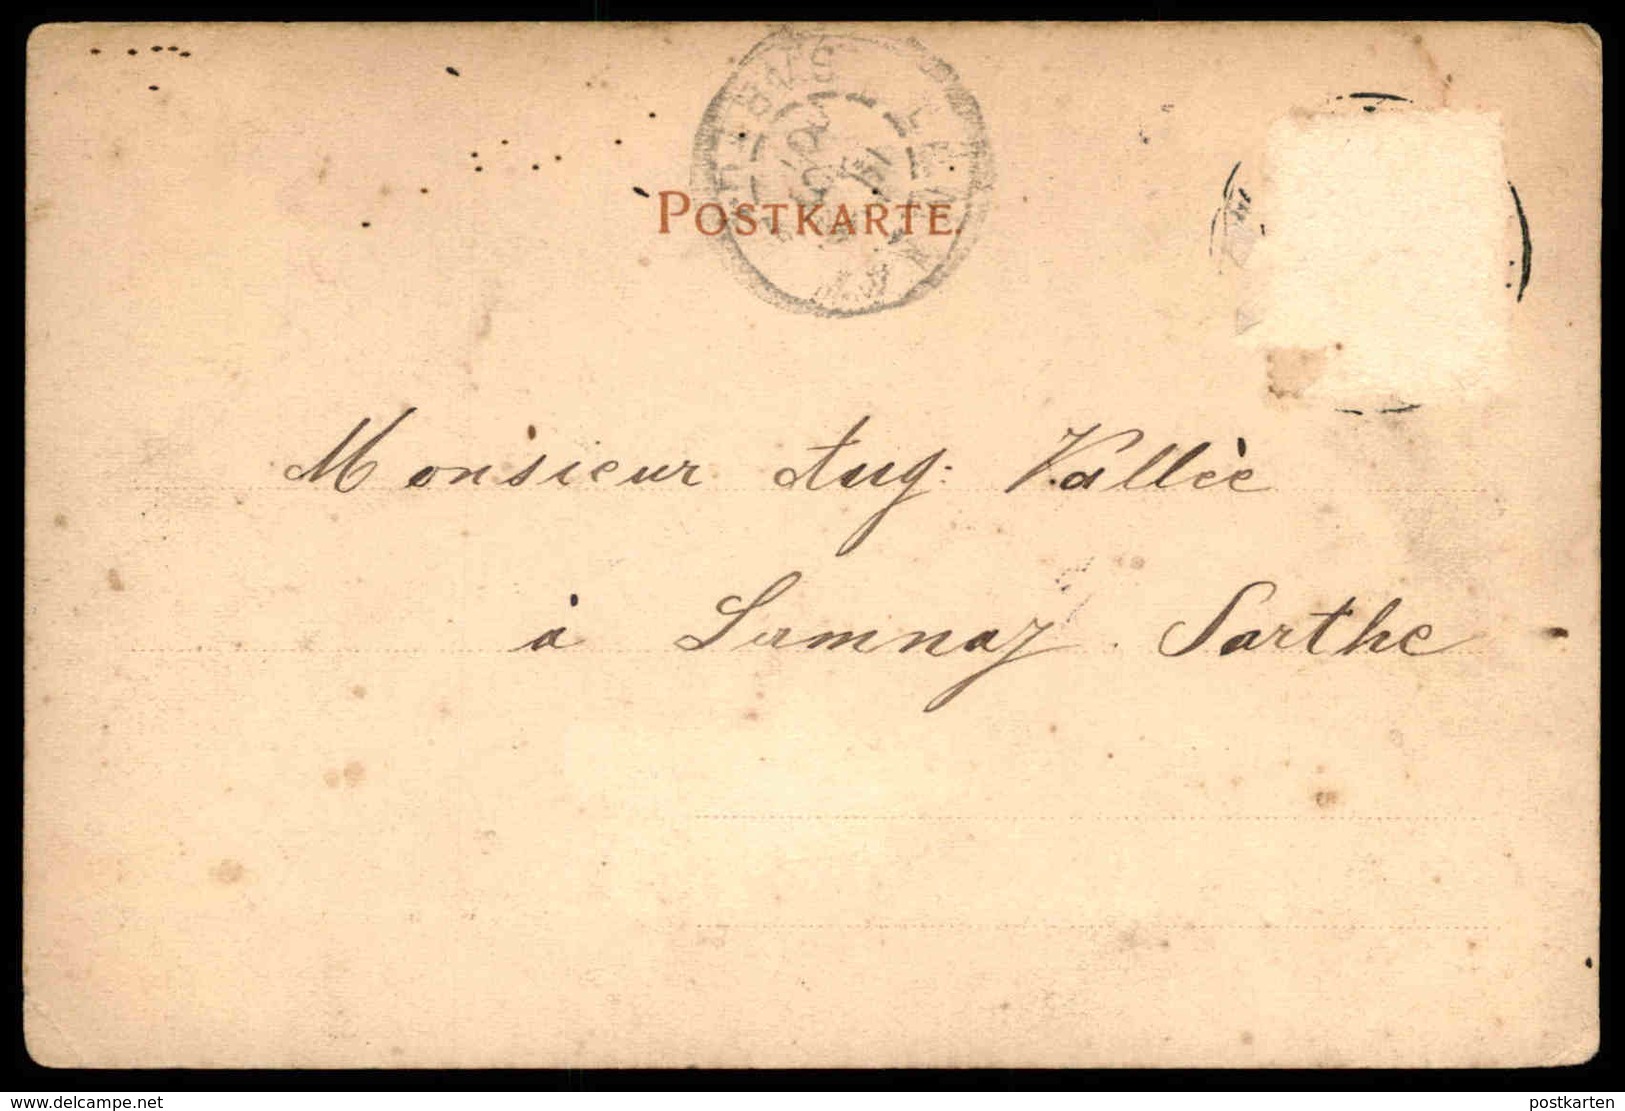 POSTKARTE.
Monsieur Aug: Vallèe
à Lamnay. Sarthe
www.delcampe.net
postkarten